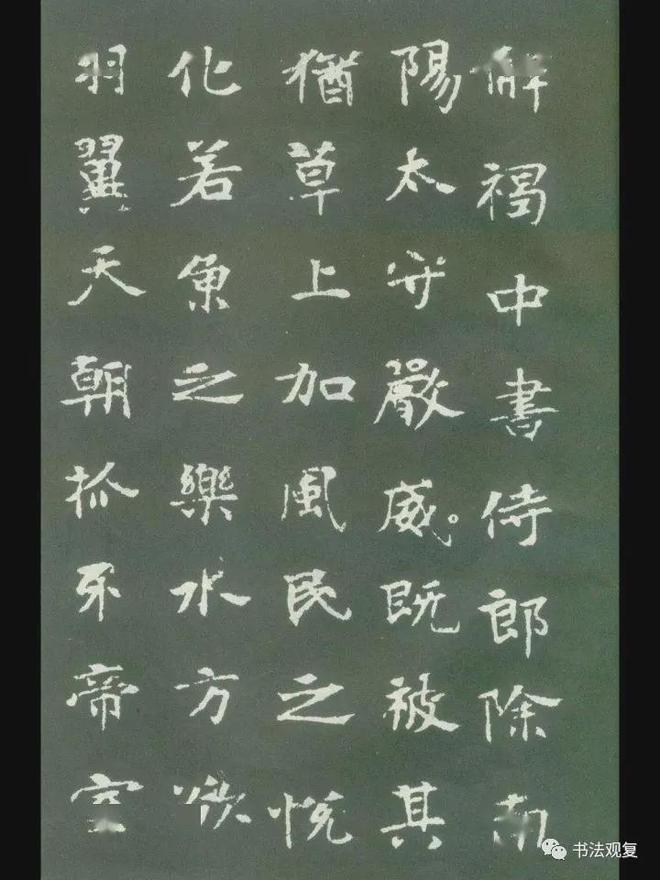 解褐中書侍郎除南
陽太守嚴威。既被其
猶草上加風民之悅
化若魚之樂水方欲
羽翼天朝抓牙帝室
书法观复